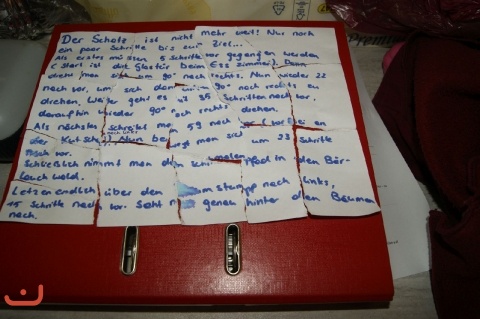 Der Schatz ist nicht mehr weit! Nur noch
ein paar Schritte bis zum Ziel...
Als erstes müssen 5 Schritte vor gegangen werden
(Start ist die Glastür beim Esszimmer). Dann
dreht man sich um 90° nach rechts. Nun wieder 22
nach vor, um sich dann um 90° nach rechts zu
drehen. Weiter geht es mit 35 Schritten nach vor,
daraufhin wieder 90° nach rechts drehen.
Als nächstes schreitet man 59 nach vor (vorbei an
der Kutsche) nach links! Nun bewegt man sich um 23 Schritte
nach vor.
Schließlich nimmt man den schmalen Pfad in den Bär-
lauchwald.
Letztendlich über den Baumstumpf nach links,
15 Schritte nach vor. Seht genau hinter den Bäumen
nach.
Premium